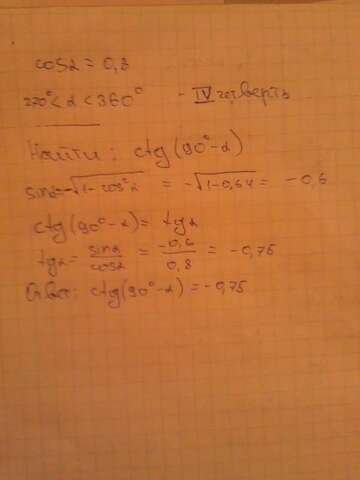 cosα = 0,8
270° < α < 360° - IV четверть
Найти: ctg(90°-α)
sinα=-√1-cos²α = -√1-0,64 = -0,6
ctg(90°-α)= tgα
tgα= sinα/cosα = -0,6/0,8 = -0,75
Ответ: ctg(90°-α)=-0,75